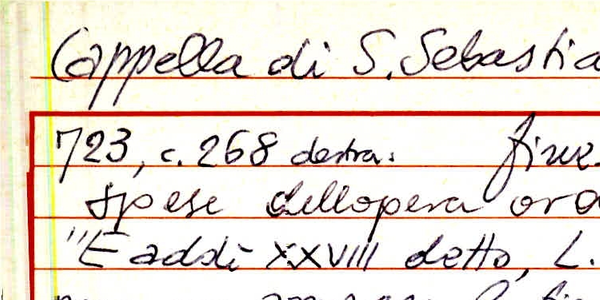 Cappella di S. Sebastia
723, c. 268 destra:
spese dellopera ora
"E addì XXVIII detto, L.